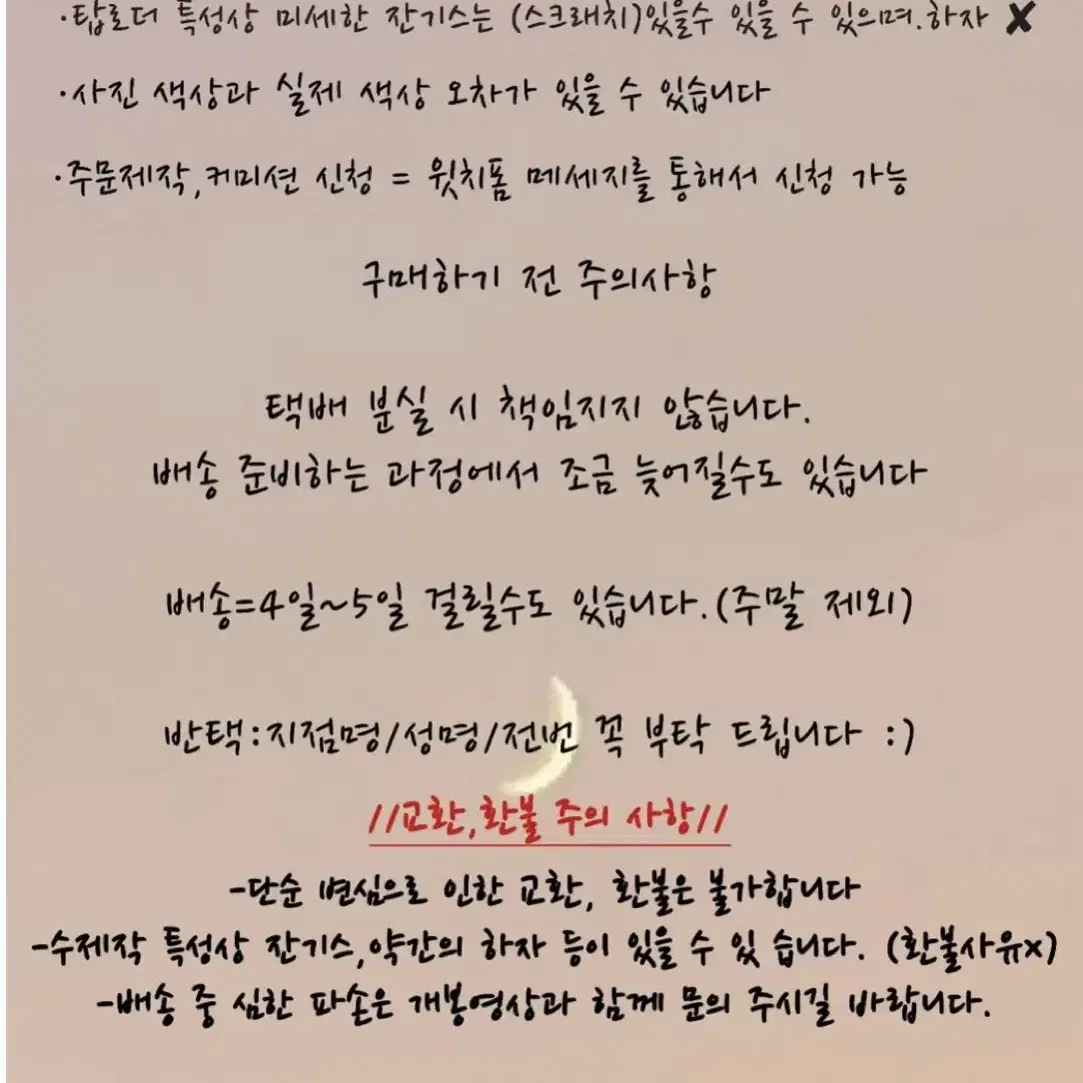 ·탑로더 특성상 미세한 잔기스는 (스크래치)있을수 있을 수 있으며.하자 ✘
·사진 색상과 실제 색상 오차가 있을 수 있습니다
·주문제작,커미션 신청 = 윗치폼 메세지를 통해서 신청 가능
구매하기 전 주의사항
택배 분실 시 책임지지 않습니다.
배송 준비하는 과정에서 조금 늦어질수도 있습니다
배송=4일~5일 걸릴수도 있습니다.(주말 제외)
반택:지점명/성명/전번 꼭 부탁 드립니다 :)
//교환,환불 주의 사항//
-단순 변심으로 인한 교환, 환불은 불가합니다
-수제작 특성상 잔기스,약간의 하자 등이 있을 수 있 습니다. (환불사유x)
-배송 중 심한 파손은 개봉영상과 함께 문의 주시길 바랍니다.